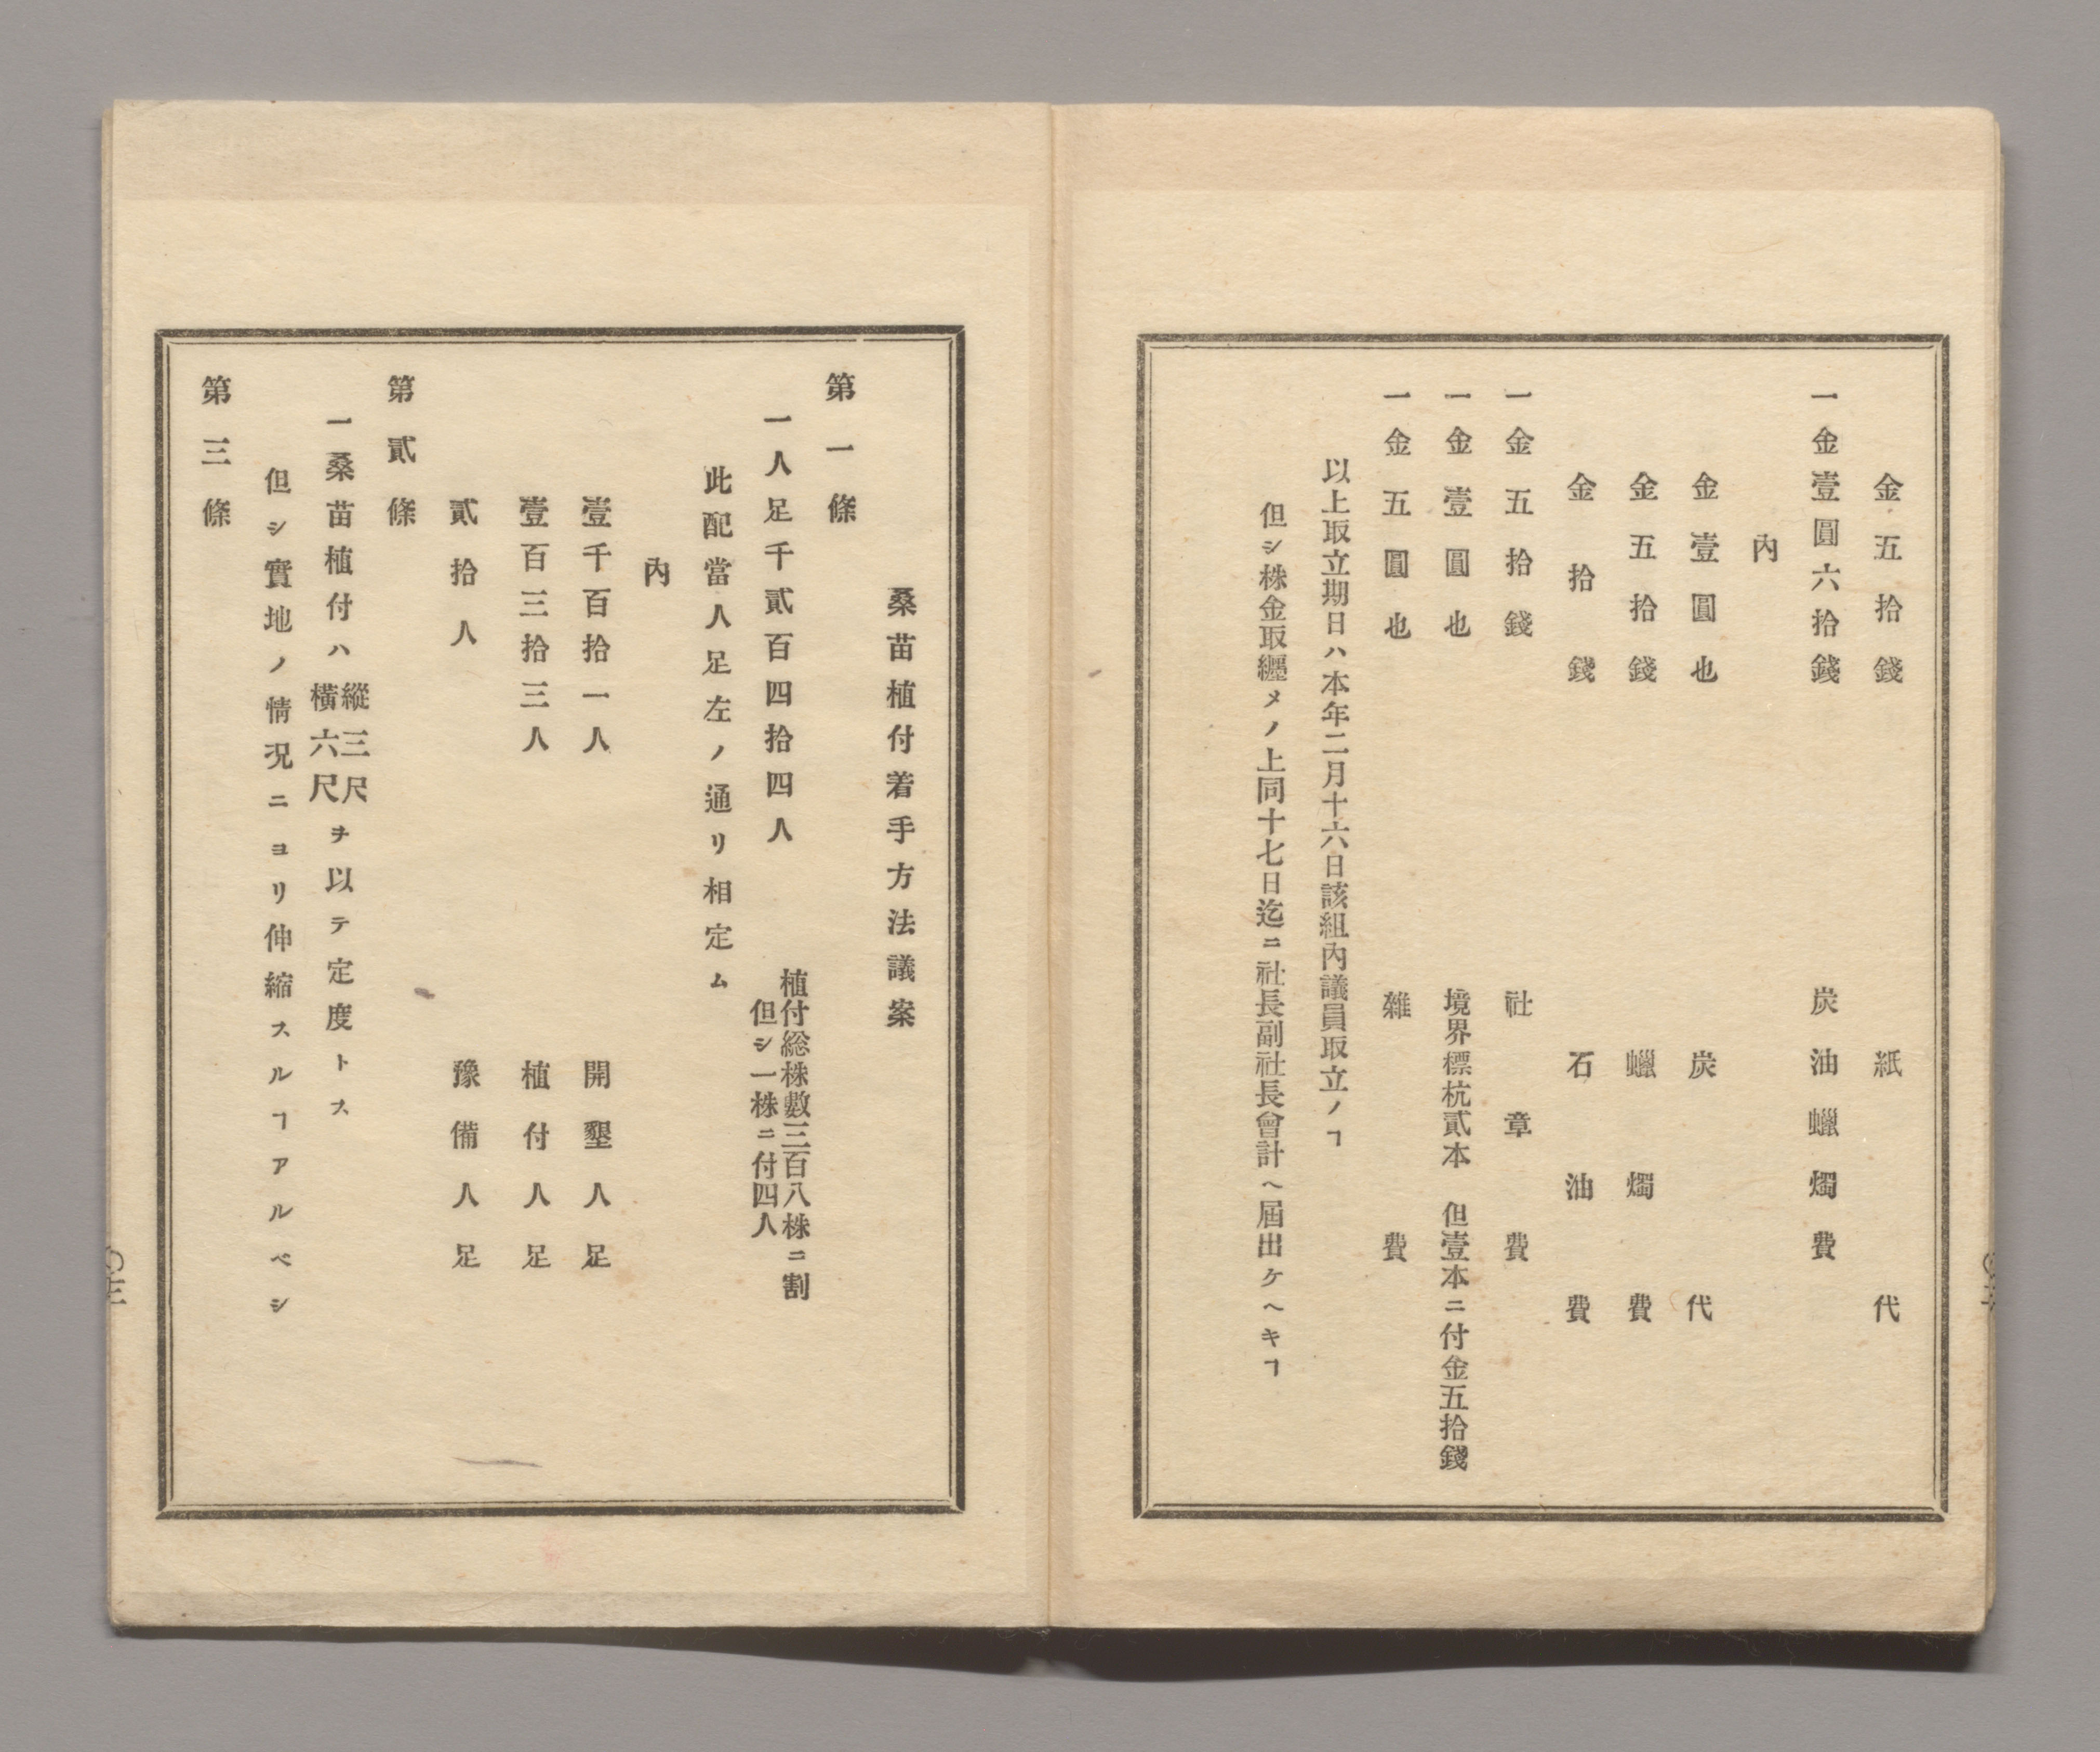 金五拾錢　紙代
一金壹圓六拾錢　炭油蠟燭費
內
金壹圓也　炭代
金五拾錢　蠟燭費
金拾錢　石油費
一金五拾錢　社章費
一金壹圓也　境界標杭貳本　但壹本ニ付金五拾錢
一金五圓也　雜費
以上取立期日ハ本年二月十六日該組內議員取立ノヿ
但シ株金取纒メノ上同十七日迄ニ社長副社長會計ヘ屆出ケヘキヿ
桑苗植付着手方法議案
第一條
一人足千貳百四拾四人　植付総株數三百八株ニ割
但シ一株ニ付四人
此配當人足左ノ通リ相定ム
內
壹千百拾一人　開墾人足
壹百三拾三人　植付人足
貳拾人　豫備人足
第貳條
一桑苗植付ハ縱三尺橫六尺ヲ以テ定度トス
但シ實地ノ情況ニヨリ伸縮スルヿアルベシ
第三條